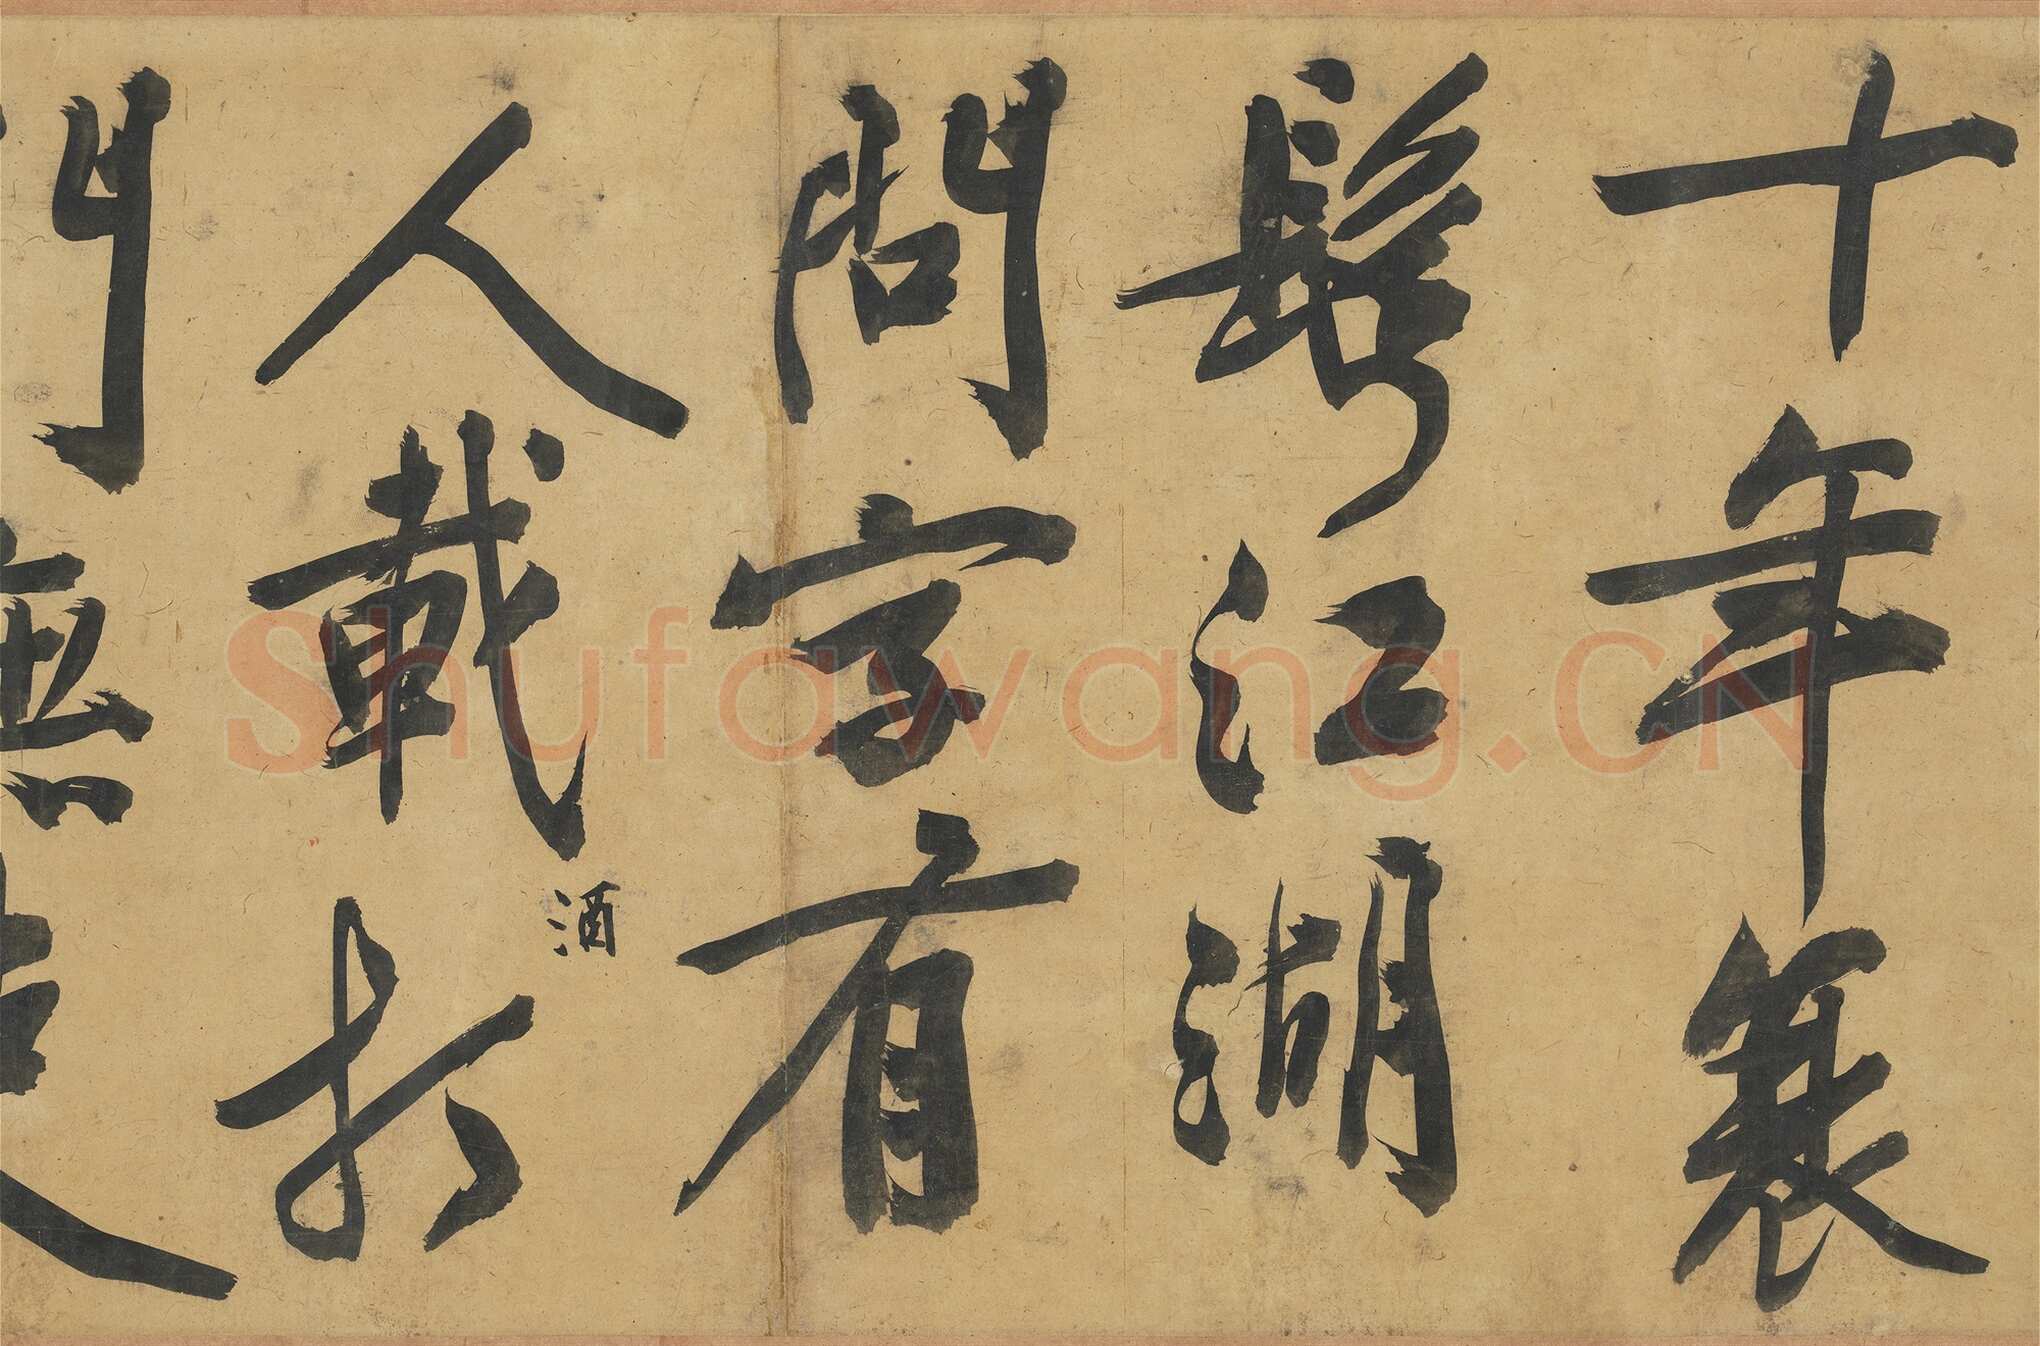 十年衰
鬢江湖
問字有
人載酒打
門無
Shufawang.CN